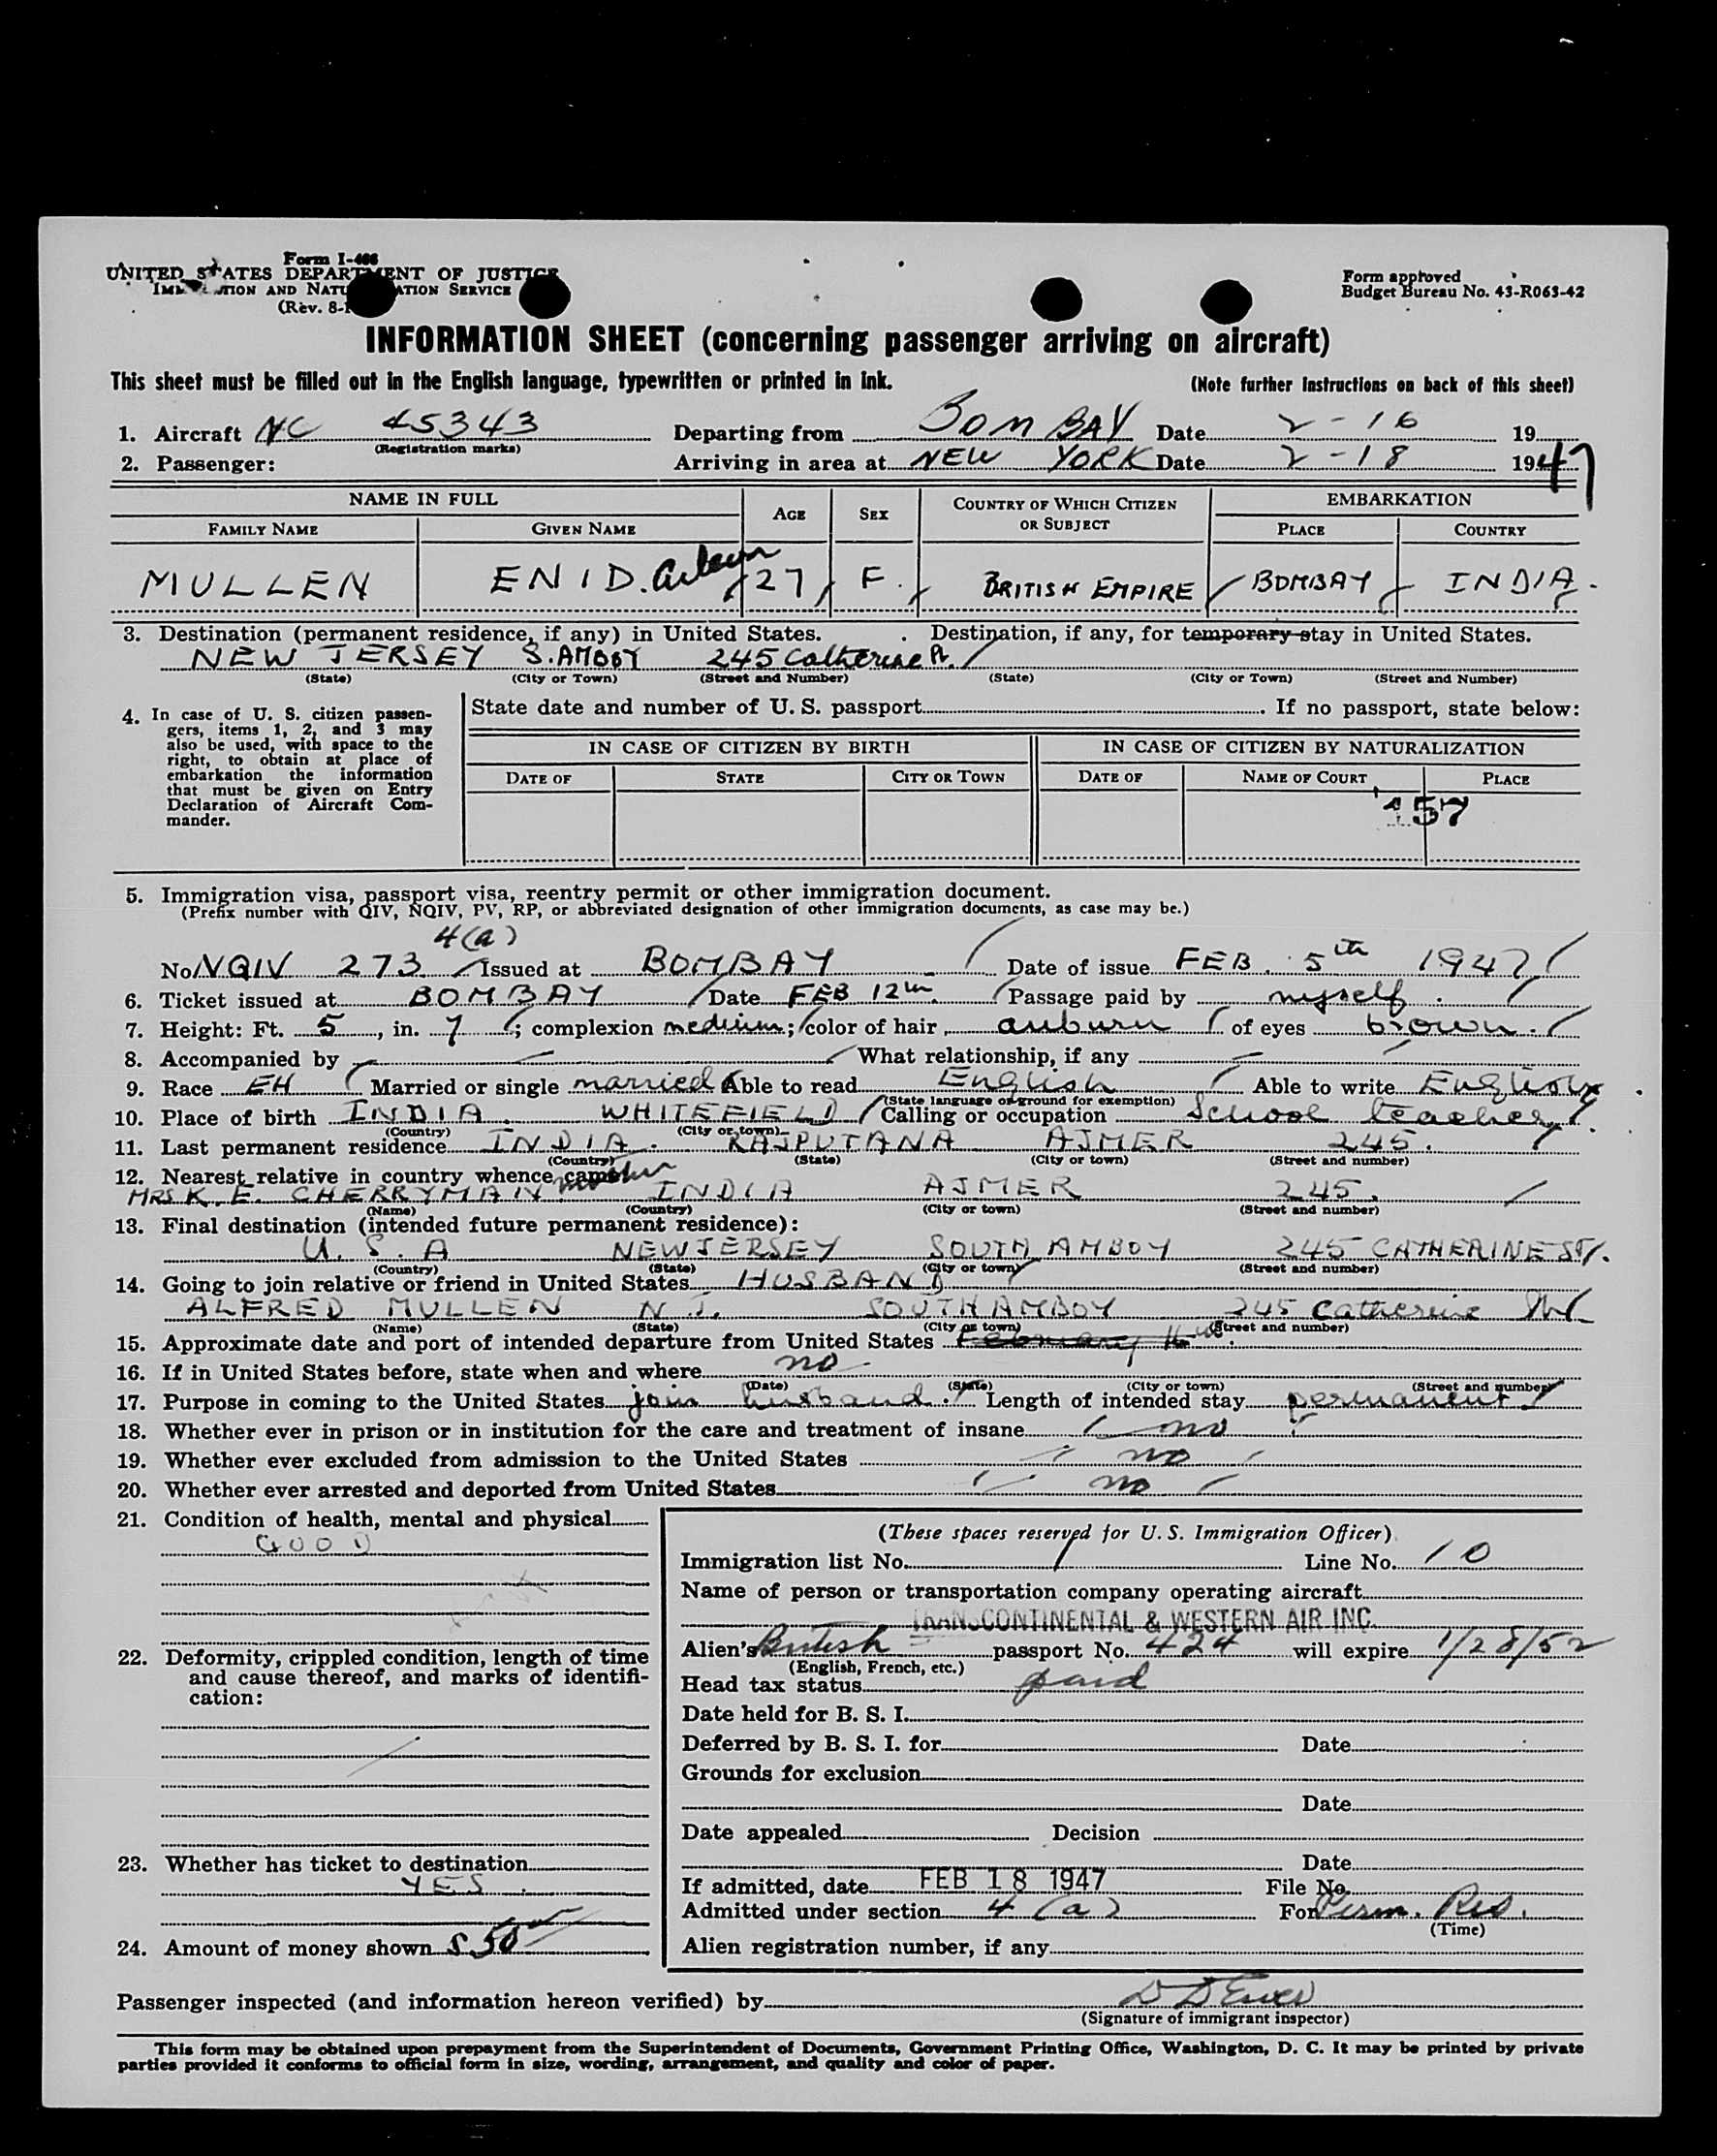 Form I-466
UNITED STATES DEPARTMENT OF JUSTICE
IMMIGRATION AND NATURALIZATION SERVICE
(Rev. 8-
Form approved
Budget Bureau No. 43-R063-42
INFORMATION SHEET (concerning passenger arriving on aircraft)
This sheet must be filled out in the English language, typewritten or printed in ink. (Note further instructions on back of this sheet)
1. Aircraft NC 45343 Departing from BOMBAY Date 2-16 19
(Registration marks)
2. Passenger: Arriving in area at NEW YORK Date 2-18 1947
NAME IN FULL AGE SEX COUNTRY OF WHICH CITIZEN OR SUBJECT EMBARKATION
FAMILY NAME GIVEN NAME PLACE COUNTRY
MULLEN ENID. 27 F. BRITISH EMPIRE BOMBAY INDIA.
3. Destination (permanent residence, if any) in United States. Destination, if any, for temporary stay in United States.
NEW JERSEY S. AMBOY 245 Catherine
(State) (City or Town) (Street and Number) (State) (City or Town) (Street and Number)
4. In case of U. S. citizen passen-
gers, items 1, 2, and 3 may
also be used, with space to the
right, to obtain at place of
embarkation the information
that must be given on Entry
Declaration of Aircraft Com-
mander.
State date and number of U. S. passport. If no passport, state below:
IN CASE OF CITIZEN BY BIRTH IN CASE OF CITIZEN BY NATURALIZATION
DATE OF STATE CITY OR TOWN DATE OF NAME OF COURT PLACE
157
5. Immigration visa, passport visa, reentry permit or other immigration document.
(Prefix number with QIV, NQIV, PV, RP, or abbreviated designation of other immigration documents, as case may be.)
4(a)
No. NQIV 273 Issued at BOMBAY Date of issue FEB. 5th 1947
6. Ticket issued at BOMBAY Date FEB 12th Passage paid by myself.
7. Height: Ft. 5, in. 7; complexion medium; color of hair auburn of eyes brown.
8. Accompanied by — What relationship, if any —
9. Race EH Married or single married Able to read English Able to write English
(State language or ground for exemption)
10. Place of birth INDIA. WHITEFIELD Calling or occupation School teacher
(Country) (City or town)
11. Last permanent residence INDIA. RAJPUTANA AJMER 245.
(Country) (State) (City or town) (Street and number)
12. Nearest relative in country whence came mother
MRS K. E. CHERRYMAN INDIA AJMER 245.
(Name) (Country) (City or town) (Street and number)
13. Final destination (intended future permanent residence):
U. S. A NEW JERSEY SOUTH AMBOY 245 CATHERINE ST.
(Country) (State) (City or town) (Street and number)
14. Going to join relative or friend in United States HUSBAND
ALFRED MULLEN N.J. SOUTH AMBOY 245 Catherine St
(Name) (State) (City or town) (Street and number)
15. Approximate date and port of intended departure from United States February 16
16. If in United States before, state when and where no
(Date) (State) (City or town) (Street and number)
17. Purpose in coming to the United States join husband. Length of intended stay permanent
18. Whether ever in prison or in institution for the care and treatment of insane no
19. Whether ever excluded from admission to the United States no
20. Whether ever arrested and deported from United States no
21. Condition of health, mental and physical
GOOD
22. Deformity, crippled condition, length of time
and cause thereof, and marks of identifi-
cation:
23. Whether has ticket to destination
YES.
24. Amount of money shown $50
(These spaces reserved for U. S. Immigration Officer)
Immigration list No. 1 Line No. 10
Name of person or transportation company operating aircraft
TRANSCONTINENTAL & WESTERN AIR INC.
Alien's British passport No. 424 will expire 1/28/52
(English, French, etc.)
Head tax status paid
Date held for B. S. I.
Deferred by B. S. I. for Date
Grounds for exclusion
Date
Date appealed Decision
Date
If admitted, date FEB 18 1947 File No.
Admitted under section 4 (a) For Perm. Res.
(Time)
Alien registration number, if any
Passenger inspected (and information hereon verified) by
(Signature of immigrant inspector)
This form may be obtained upon prepayment from the Superintendent of Documents, Government Printing Office, Washington, D. C. It may be printed by private
parties provided it conforms to official form in size, wording, arrangement, and quality and color of paper.